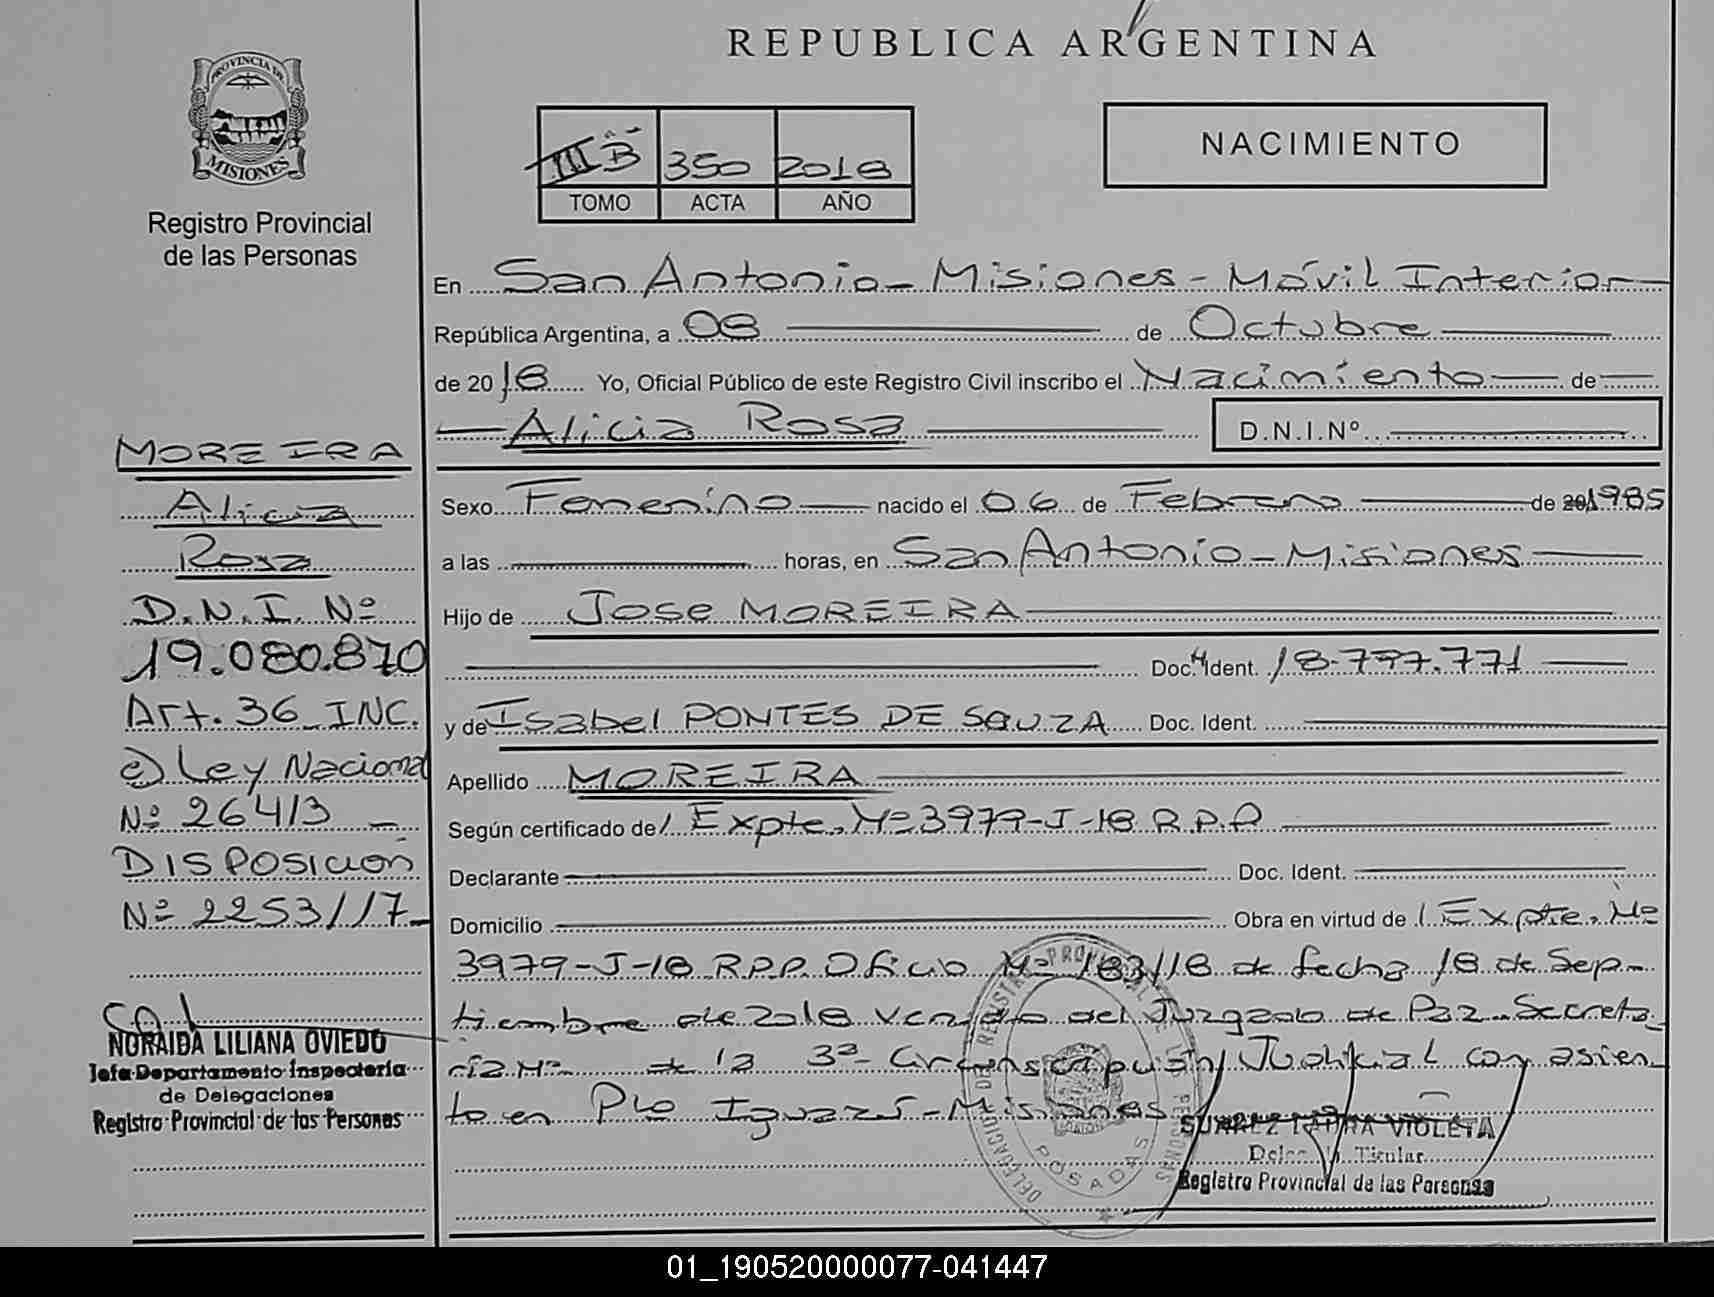 REPUBLICA ARGENTINA
PROVINCIA DE
MISIONES
Registro Provincial
de las Personas
III B 350 2018
TOMO ACTA AÑO
NACIMIENTO
En San Antonio - Misiones - Móvil Interior
República Argentina, a 08 de Octubre
de 2018 Yo, Oficial Público de este Registro Civil inscribo el Nacimiento de
Alicia Rosa D.N.I.Nº
MOREIRA
Alicia
Rosa
D.N.I. Nº
19.080.870
Art. 36 INC.
e) Ley Nacional
Nº 26413
DISPOSICION
Nº 2253/17
Sexo Femenino nacido el 06 de Febrero de 201985
a las horas, en San Antonio - Misiones
Hijo de Jose MOREIRA
Doc. Ident. 18.797.771
y de Isabel PONTES DE SOUZA Doc. Ident.
Apellido MOREIRA
Según certificado de Expte. Nº 3979-J-18 R.P.P
Declarante Doc. Ident.
Domicilio Obra en virtud de Expte. Nº
3979-J-18 R.P.P. Oficio Nº 183/18 de fecha 18 de Sep-
tiembre de 2018 venido del Juzgado de Paz Secreta
ría Nº de la 3ª Circunscripción Judicial con asien
to en Pto Iguazú - Misiones
NORAIDA LILIANA OVIEDO
Jefa Departamento Inspectoria
de Delegaciones
Registro Provincial de las Personas
POSADAS
SUAREZ VIOLETA
Titular
Registro Provincial de las Personas
01_190520000077-041447